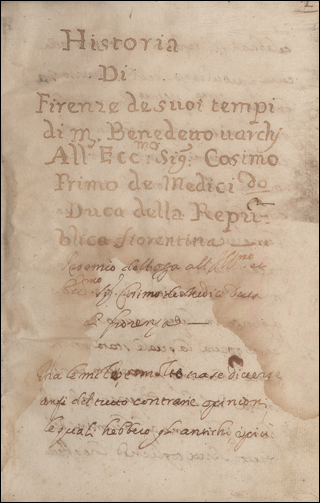 Historia
Di
Firenze de suoi tempi
di mʳ. Benedetto uarchj
All' Eccᵐᵒ: Sigʳ. Cosimo
Primo de Medici 2do
Duca della Repu-
blica fiorentina
Proemio dell
Sʳ. Cosimo de Medici Duca
di fiorenza
molto
anzi del tutto contrarie opinion
le quali hebbero gl'antichi